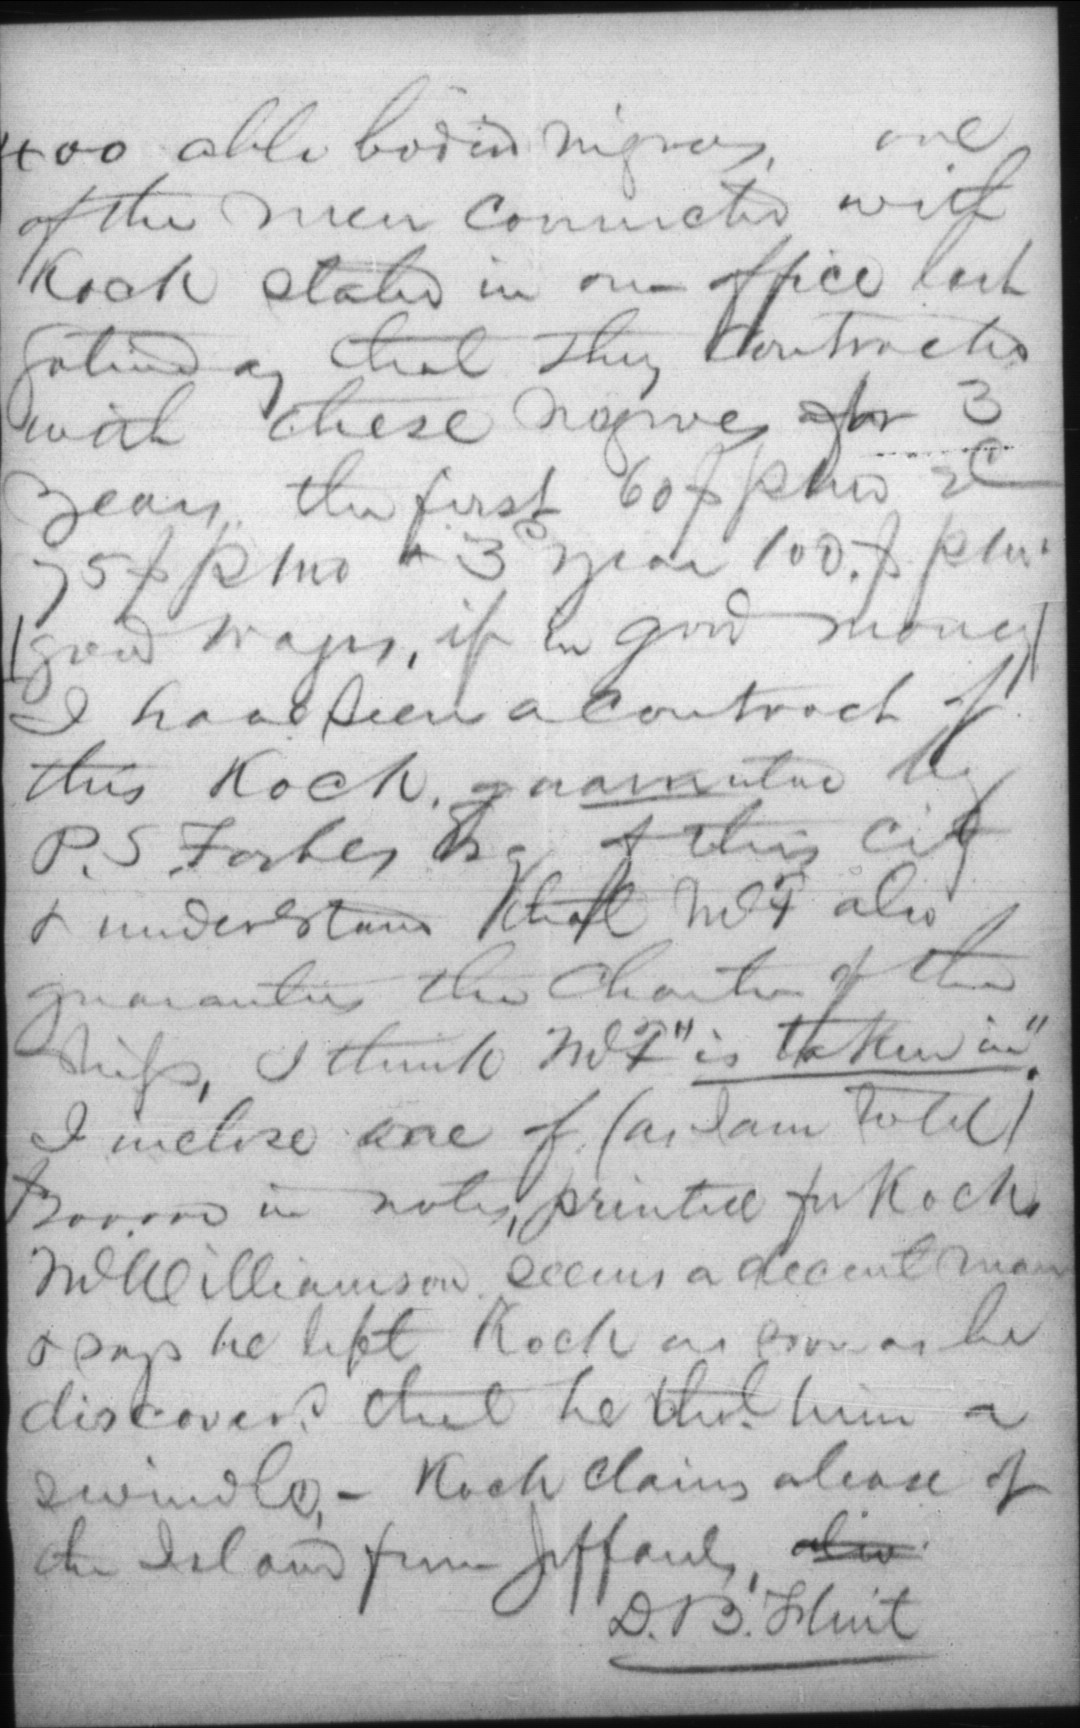 400 able bodied negroes, one
of the men connected with
Koch stated in our office last
Saturday that they contracted
with these negroes for 3
years, the first 60$ p mo 2d
75$ p mo + 3d year 100.$ p mo.
(good wages, if in good money)
I have seen a contract of
this Koch, guaranteed by
P.S. Forbes Esq of this City
& understand that Mr F also
guarantees the Charter of the
ships, I think Mr F "is taken in".
I inclose one of (as I am told)
in notes, printed for Koch,
Mr Williamson seems a decent man
& says he left Koch as soon as he
discovered that he him a
swindle, - Koch claims a lease of
the Island from Jeffards, also
D. B. Flint